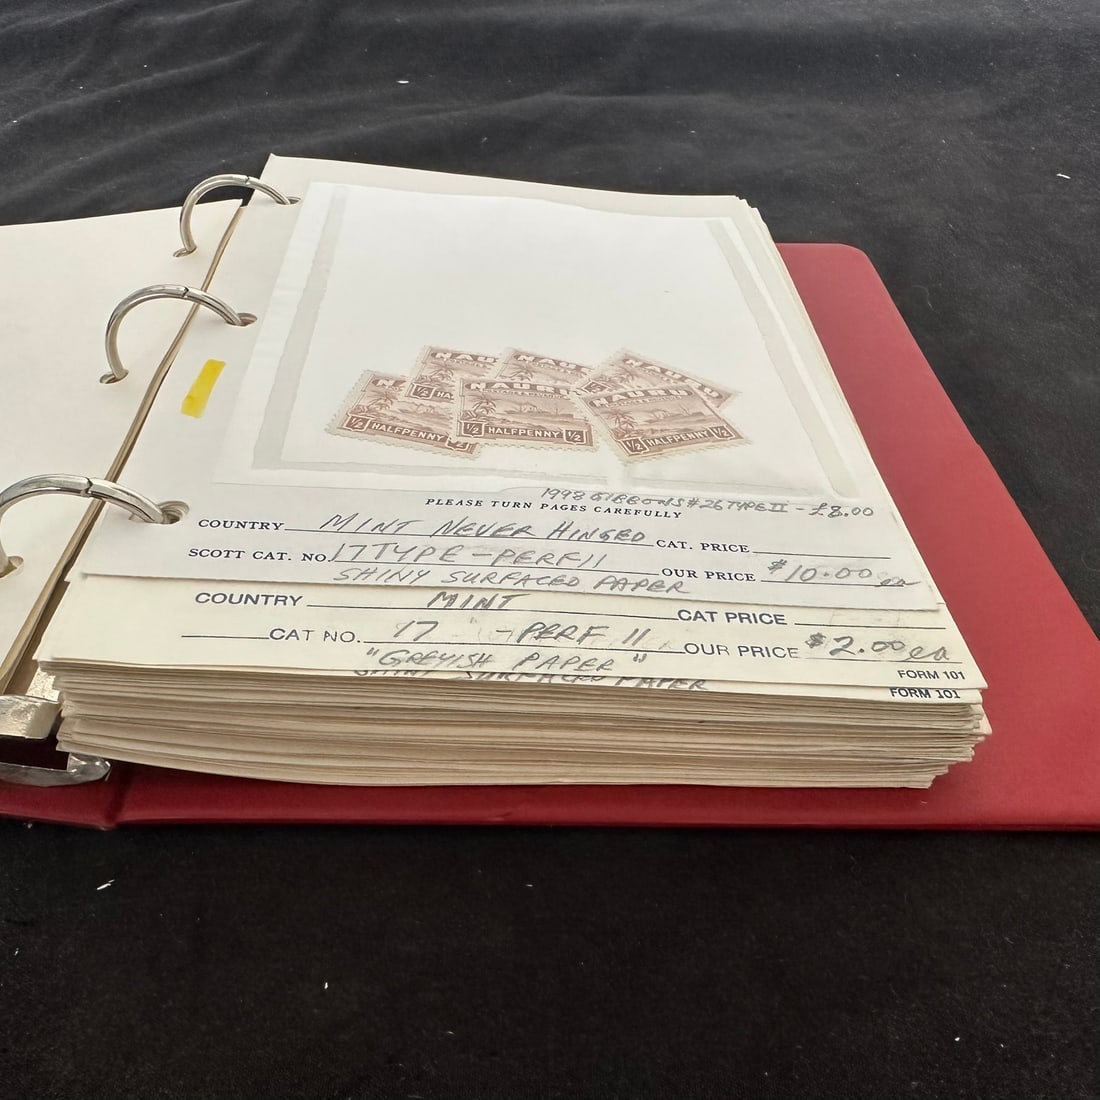 NAURU
NAURU
NAURU
NAURU
NAURU
½ HALFPENNY ½
½ HALFPENNY ½
½ HALFPENNY ½
1998 GIBBONS #26 TYPE II - £8.00
PLEASE TURN PAGES CAREFULLY
COUNTRY MINT NEVER HINGED CAT. PRICE
SCOTT CAT. NO. 17 TYPE - PERF 11 OUR PRICE $10.00 ea
SHINY SURFACED PAPER
COUNTRY MINT CAT PRICE
CAT NO. 17 - PERF 11 OUR PRICE $2.00 ea
"GREYISH PAPER"
FORM 101
SHINY SURFACED PAPER
FORM 101